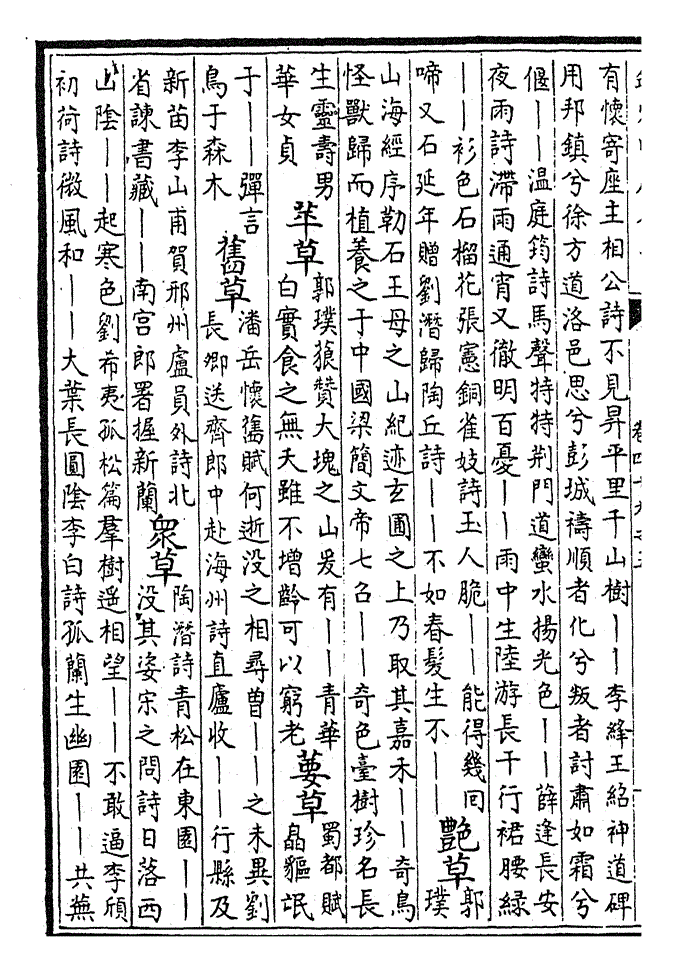 有懷寄座主相公詩不見昇平里千山樹——李絳王紹神道碑
用邦鎮兮徐方道洛邑思兮彭城禱順者化兮叛者討肅如霜兮
偃——温庭筠詩馬聲特特荆門道蠻水揚光色——薛逢長安
夜雨詩滯雨通宵又徹明百憂——雨中生陸游長干行裙腰緑
——衫色石榴花張憲銅雀妓詩玉人脆——能得幾回
啼又石延年贈劉潛歸陶丘詩——不如春髮生不——
艷草
郭
璞
山海經序勒石王母之山紀迹玄圃之上乃取其嘉禾——奇鳥
怪獸歸而植養之于中國梁簡文帝七召——奇色臺樹珍名長
生靈壽男
華女貞
苹草
郭璞贊大塊之山爰有——青華
白實食之無夭雖不增齡可以窮老
葽草
蜀都賦
皛貙氓
于——彈言
鳥于森木
舊草
潘岳懷舊賦何逝没之相尋曽——之未異劉
長卿送齊郎中赴海州詩直廬收——行縣及
新苗李山甫賀邢州盧員外詩北
省諫書藏——南宫郎署握新蘭
衆草
陶潛詩青松在東園——
没其姿宋之問詩日落西
山陰——起寒色劉希夷孤松篇羣樹遥相望——不敢逼李頎
初荷詩微風和——大葉長圓陰李白詩孤蘭生幽園——共蕪